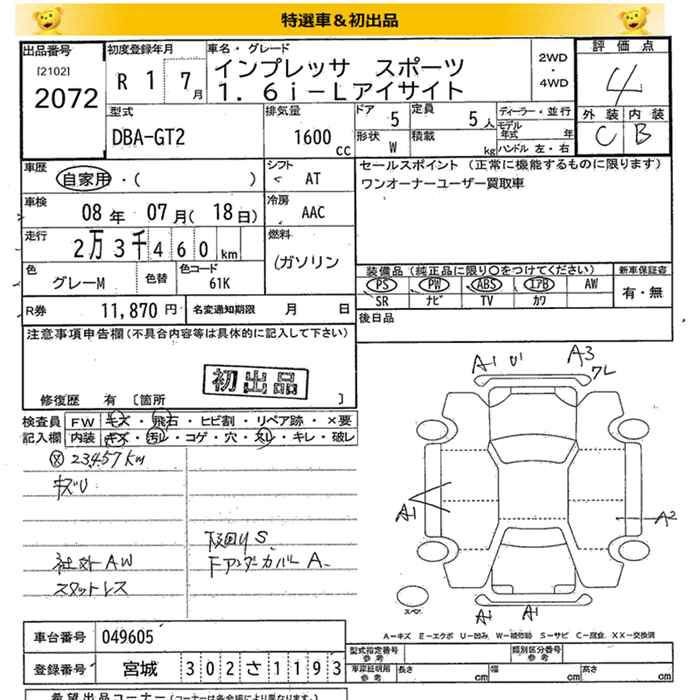 特選車&初出品
出品番号
[2102]
2072
初度登録年月
R 1 7月
車名・グレード
インプレッサ スポーツ
1.6i-Lアイサイト
2WD・4WD
評価点
4
外装 内装
C B
型式
DBA-GT2
排気量
1600cc
ドア 5
定員 5人
形状 W
積載 kg
ディーラー・並行
モデル年式 年
ハンドル 左・右
車歴
自家用・( )
シフト
AT
セールスポイント (正常に機能するものに限ります)
ワンオーナーユーザー買取車
車検
08年 07月(18日)
冷房
AAC
走行
2万3千460km
燃料
(ガソリン
色
グレーM
色替
色コード
61K
装備品(純正品に限り○をつけてください)
PS PW ABS エアB AW
SR ナビ TV カワ
新車保証書
有・無
R券 11,870円
名変通知期限 月 日
後日品
注意事項申告欄(不具合内容等は具体的に記入して下さい)
初出品
修復歴 有〔箇所 〕
検査員記入欄
FW キズ・飛石・ヒビ割・リペア跡・×要
内装 キズ・汚レ・コゲ・穴・スレ・キレ・破レ
23457km
キズU
社外AW
スタットレス
下回りS
Fアンダーカバー A
A1 U1 A3
フレ
A1
A2
スペア
A1 A1
A-キズ E-エクボ U-凹み W-補修跡 S-サビ C-腐食 XX-交換済
車台番号 049605
登録番号 宮城 302さ1193
型式指定番号 参考
類別区分番号 参考
車庫証明用 参考 長さ cm 幅 cm 高さ cm
希望出品コーナー(コーナーは各会場により異なります)